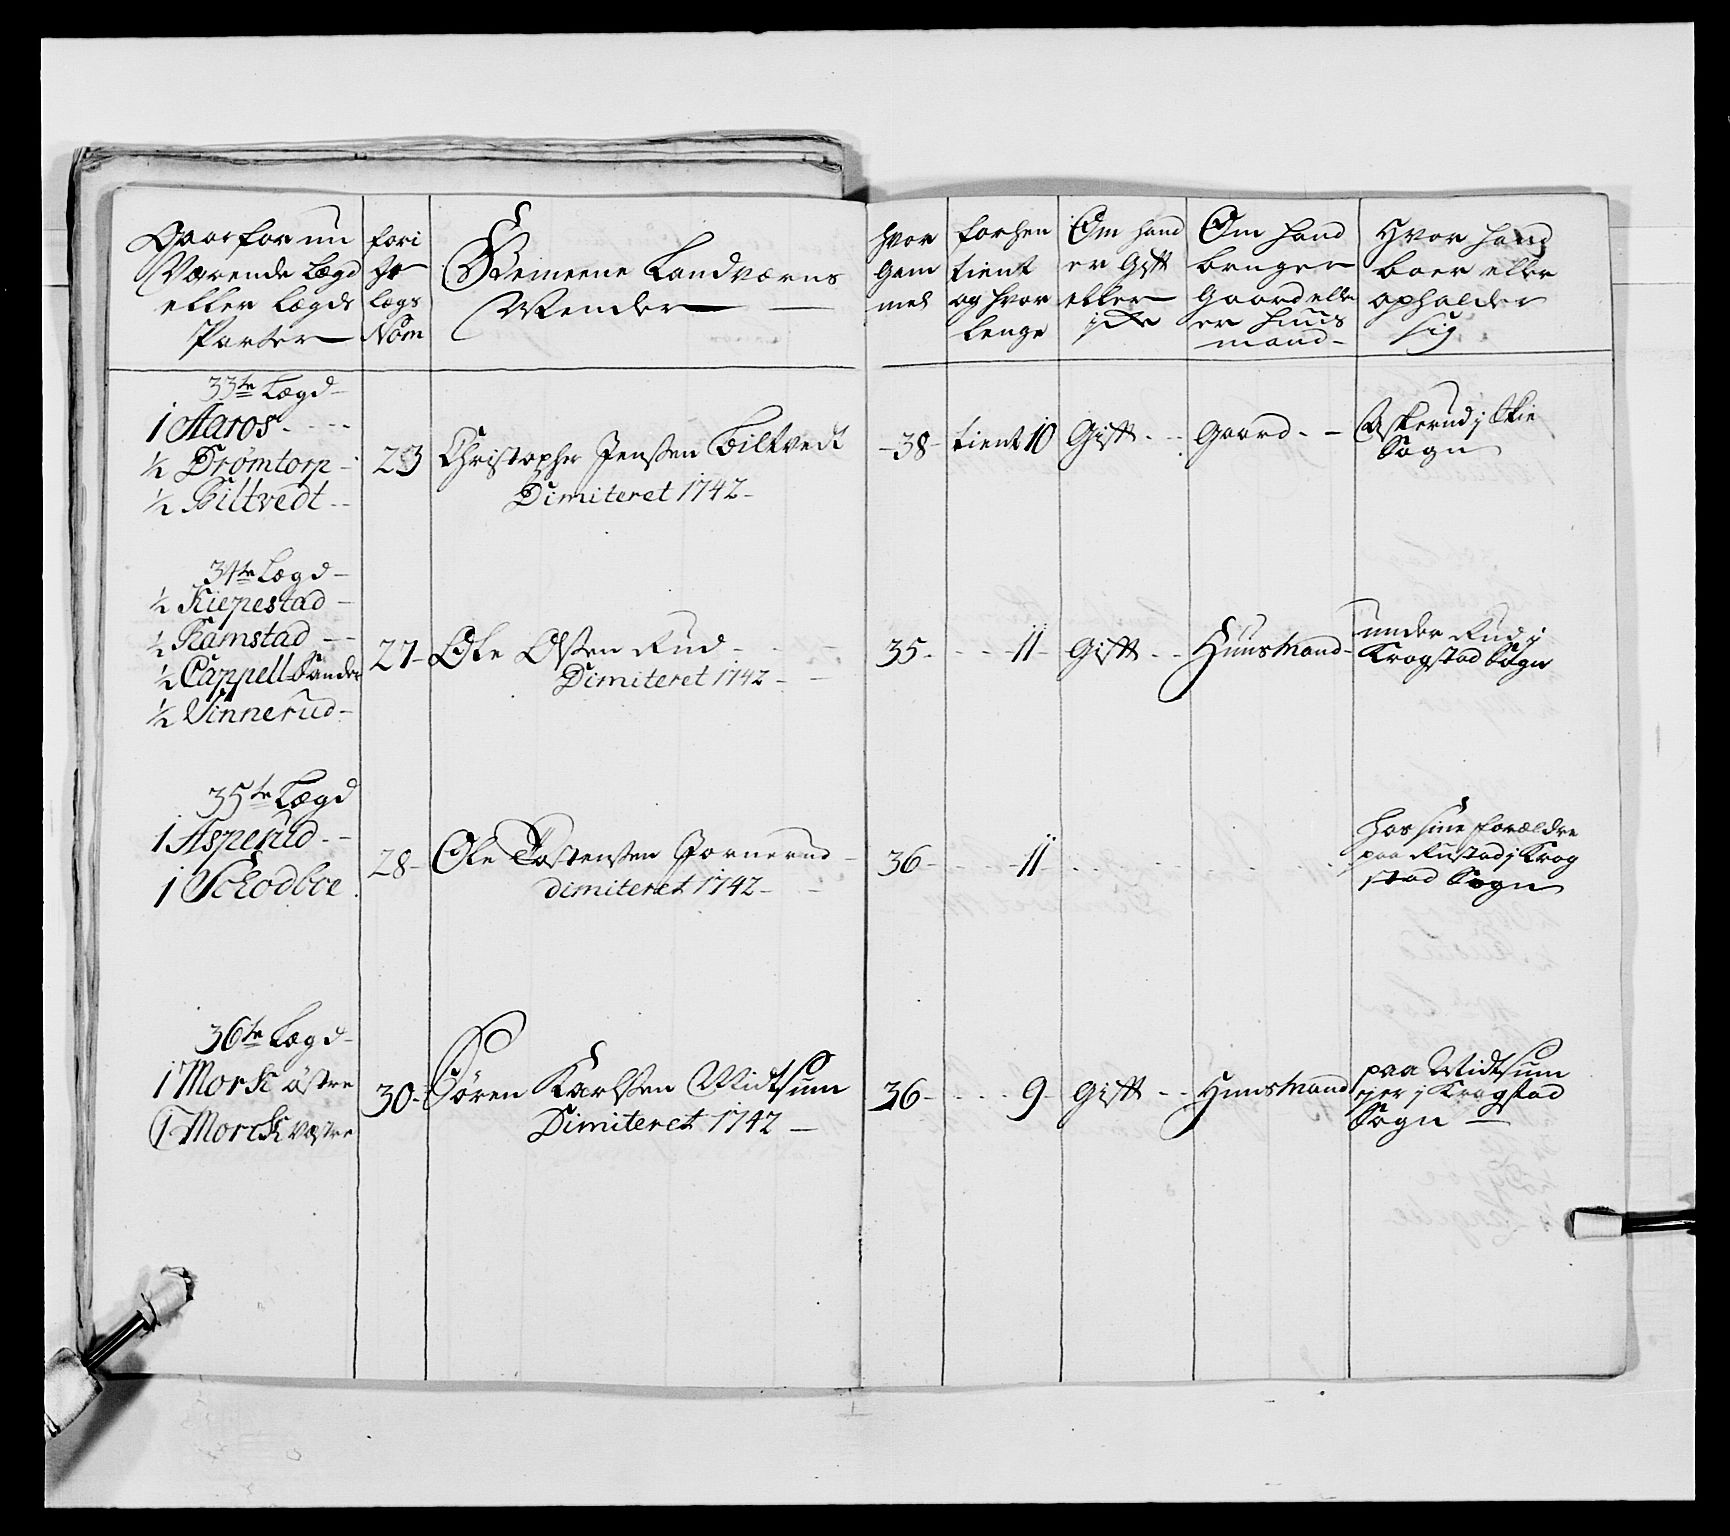 Qvorfor nu
Værende Lægd
eller Lægds
Parter
fori
ge
lægs
Nom
Gemeene Landværns
Mender
hvor
Gam
mel
forhen
tient
og hvor
lenge
Om hand
er Gift
eller
icke
Om hand
bruger
Gaard elle
er Huus
mand
Hvor hand
boer eller
opholder
sig
33te Lægd
1 Aaros
½ Drømtorp
½ Biltvedt
23
Christopher Jenssen Biltvedt
Dimiteret 1742
38
tient 10
Gift
Gaard
Askerud i Skie
Sogn
34te Lægd
½ Kiepestad
½ Ramstad
½ Cappell Sander
½ Vinnerud
27
Ole Olssen Rud
Dimiteret 1742
35
11
Gift
Huusmand
under Rud i
Krogstad Sogn
35te Lægd
1 Asperud
1 Schodboe
28
Ole Tostenssen Jornerud
dimiteret 1742
36
11
hos sine forældre
paa Rustad i Krog
stad Sogn
36te Lægd
1 Mork østre
1 Morck vestre
30
Sören Karlssen Midtsum
Dimiteret 1742
36
9
Gift
Huusmand
paa Midtsum
Ejer i Krogstad
Sogn